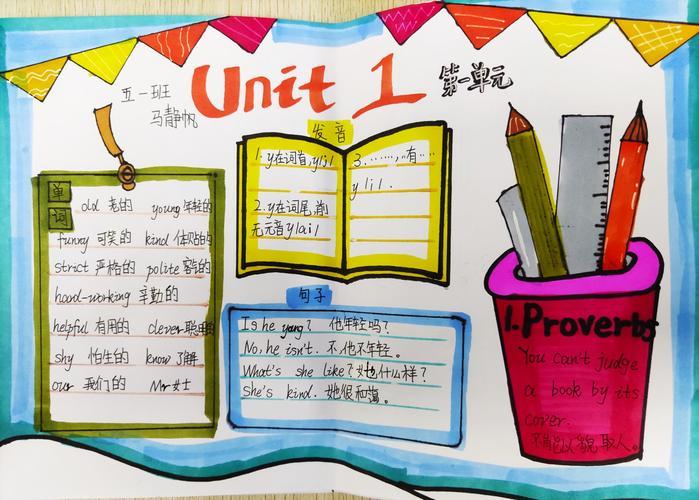 Unit 1 第一单元
五一班
马静帆
单词
old 老的 young 年轻的
funny 可笑的 kind 体贴的
strict 严格的 polite 客的
hard-working 辛勤的
helpful 有用的 clever 聪明的
shy 怕生的 know 了解
our 我们的 Mr 女士
发音
1. y在词首, y/j/
2. y在词尾,前
无元音y/ai/
3. ……,有……
y /i/.
句子
Is he young? 他年轻吗?
No, he isn't. 不,他不年轻。
What's she like? 她什么样?
She's kind. 她很和蔼。
1. Proverbs
You can't judge
a book by its
cover.
不能以貌取人。